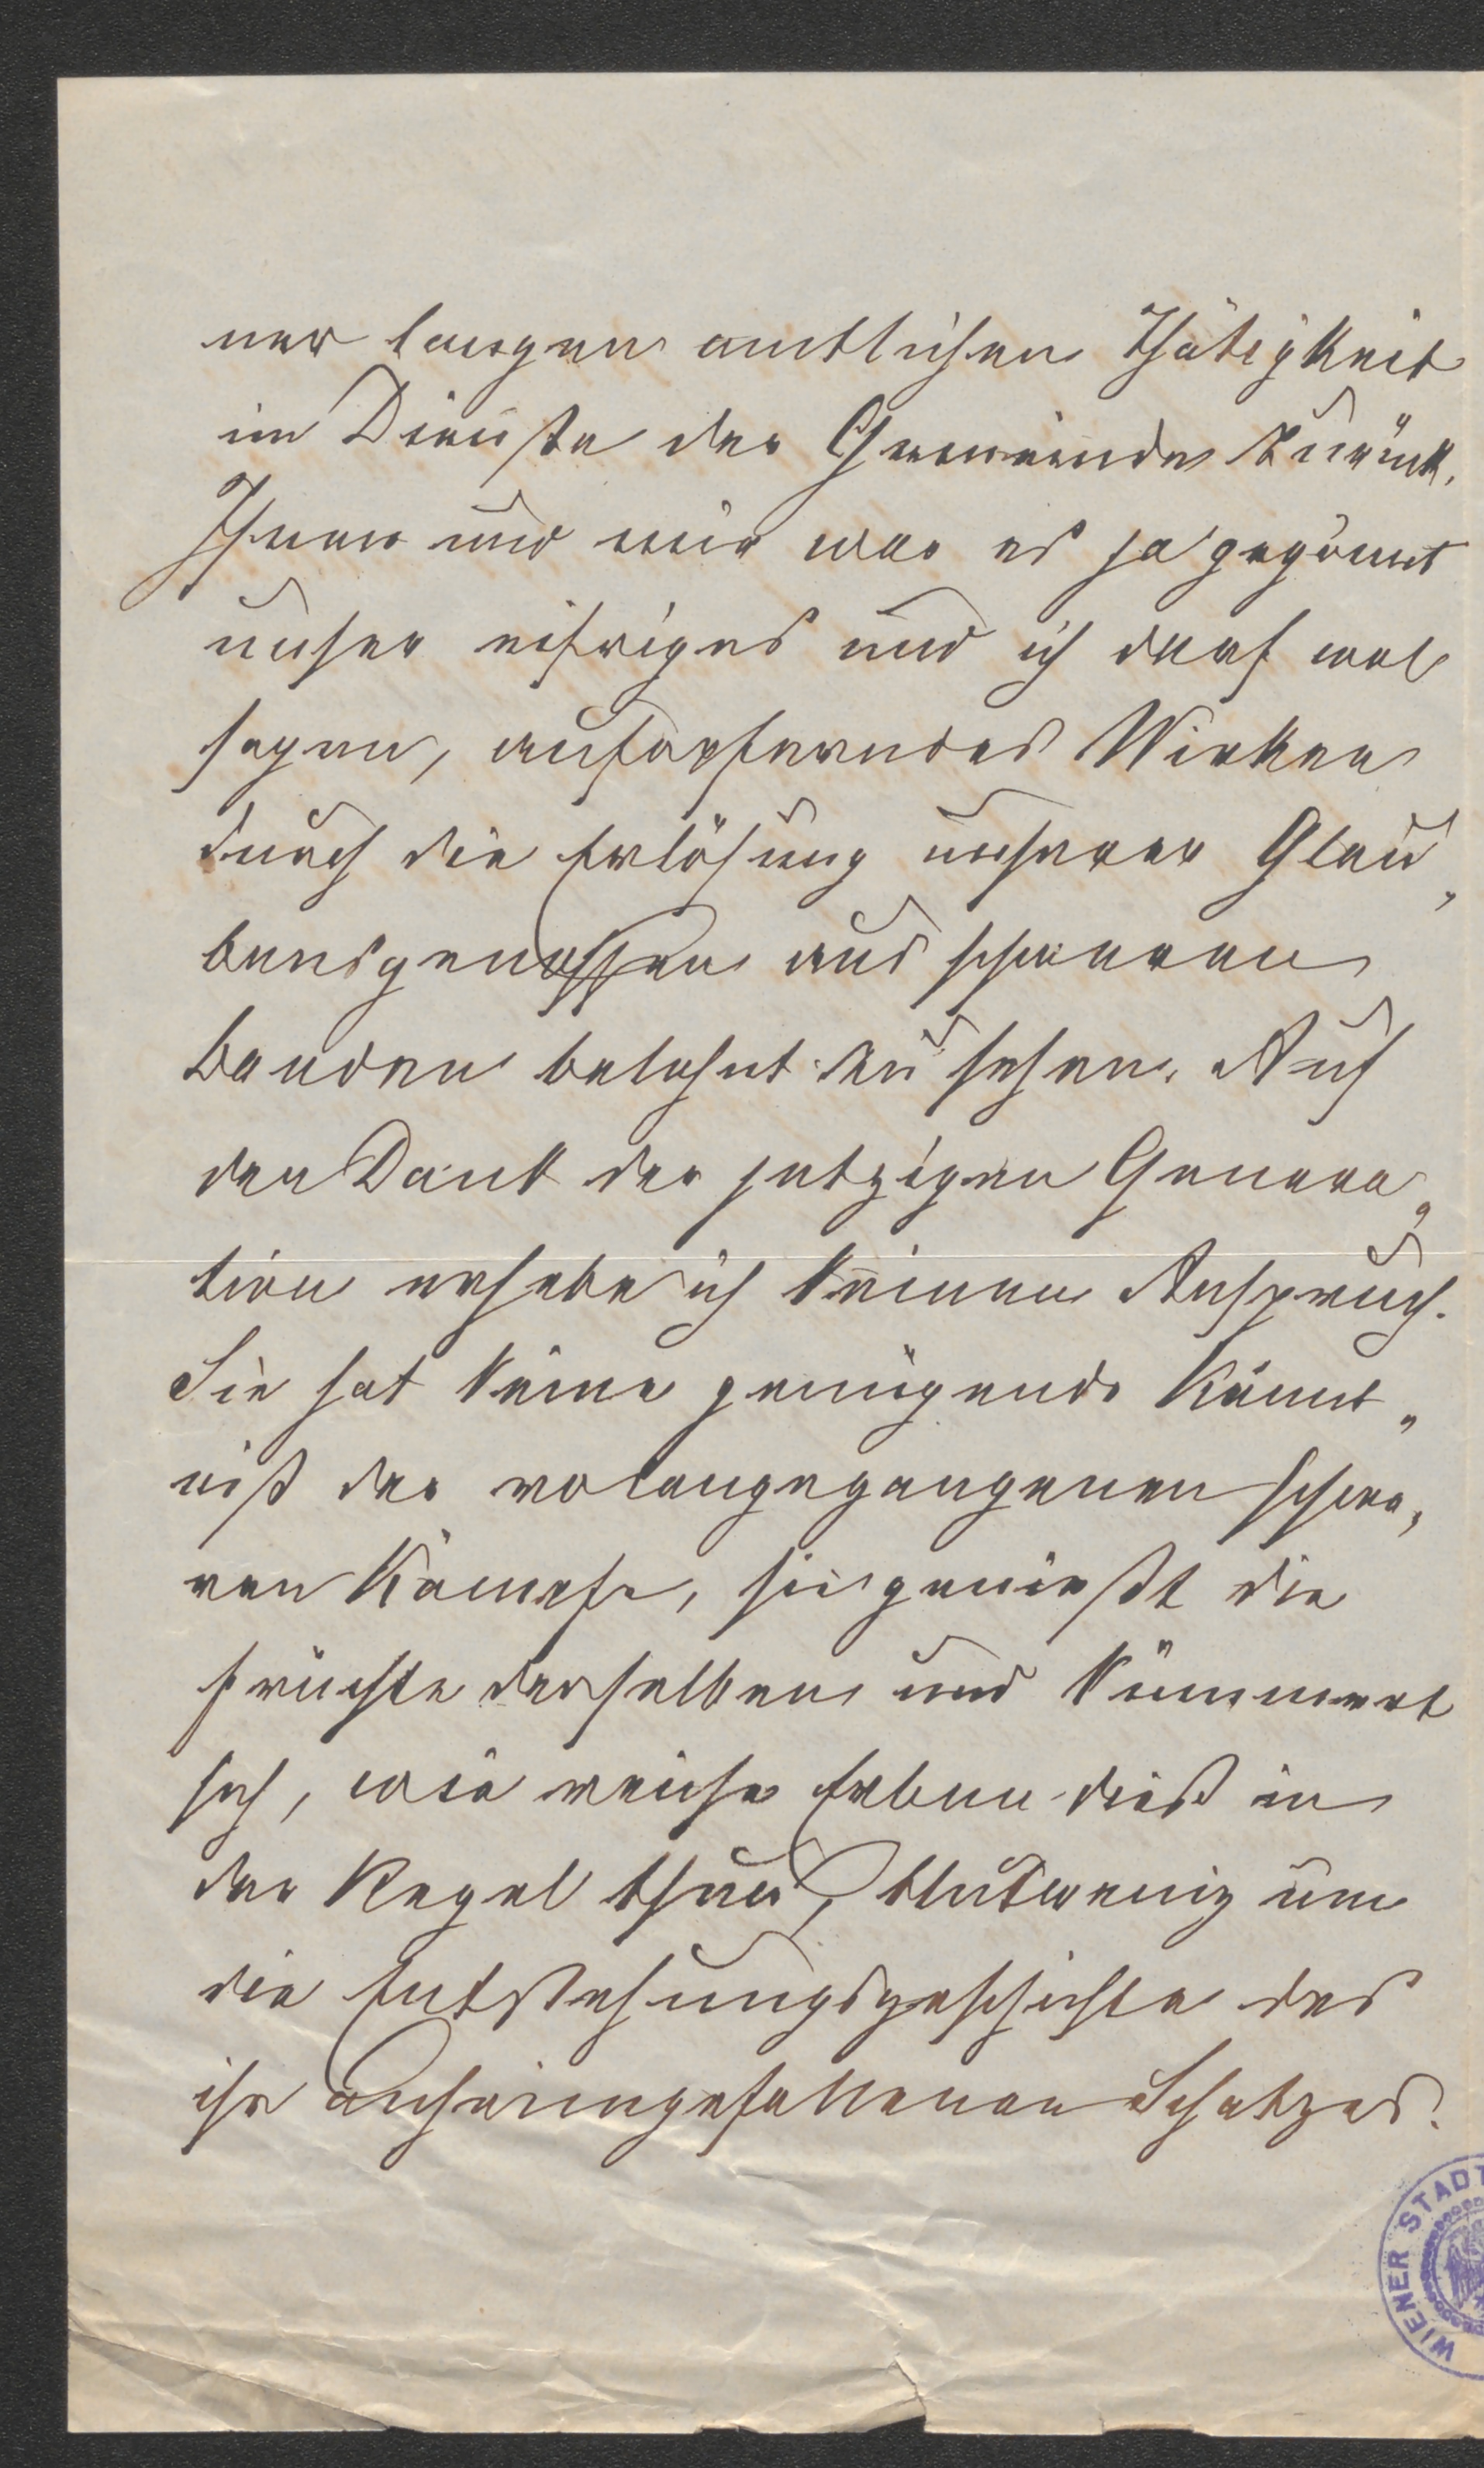 ner langen amtlichen Thätigkeit
im Dienste der Gemeinde zurück.
Ihnen und mir war es ja gegönnt
unser eifriges und ich darf wol
sagen, aufopferndes Wirken
durch die Erlösung unserer Glau„
bensgenossen aus schweren
Banden belohnt zu sehen. Auf
den Dank der jetzigen Genera„
tion erhebe ich keinen Anspruch.
Sie hat keine genügende Kennt„
niß der vorangegangenen schwe„
ren Kämpfe, sie genießt die
Früchte derselben und kümmert
sich, wie reiche Erben dieß in
der Regel thun, blutwenig um
die Entstehungsgeschichte des
ihr anheimgefallenen Schatzes.
WIENER STADT